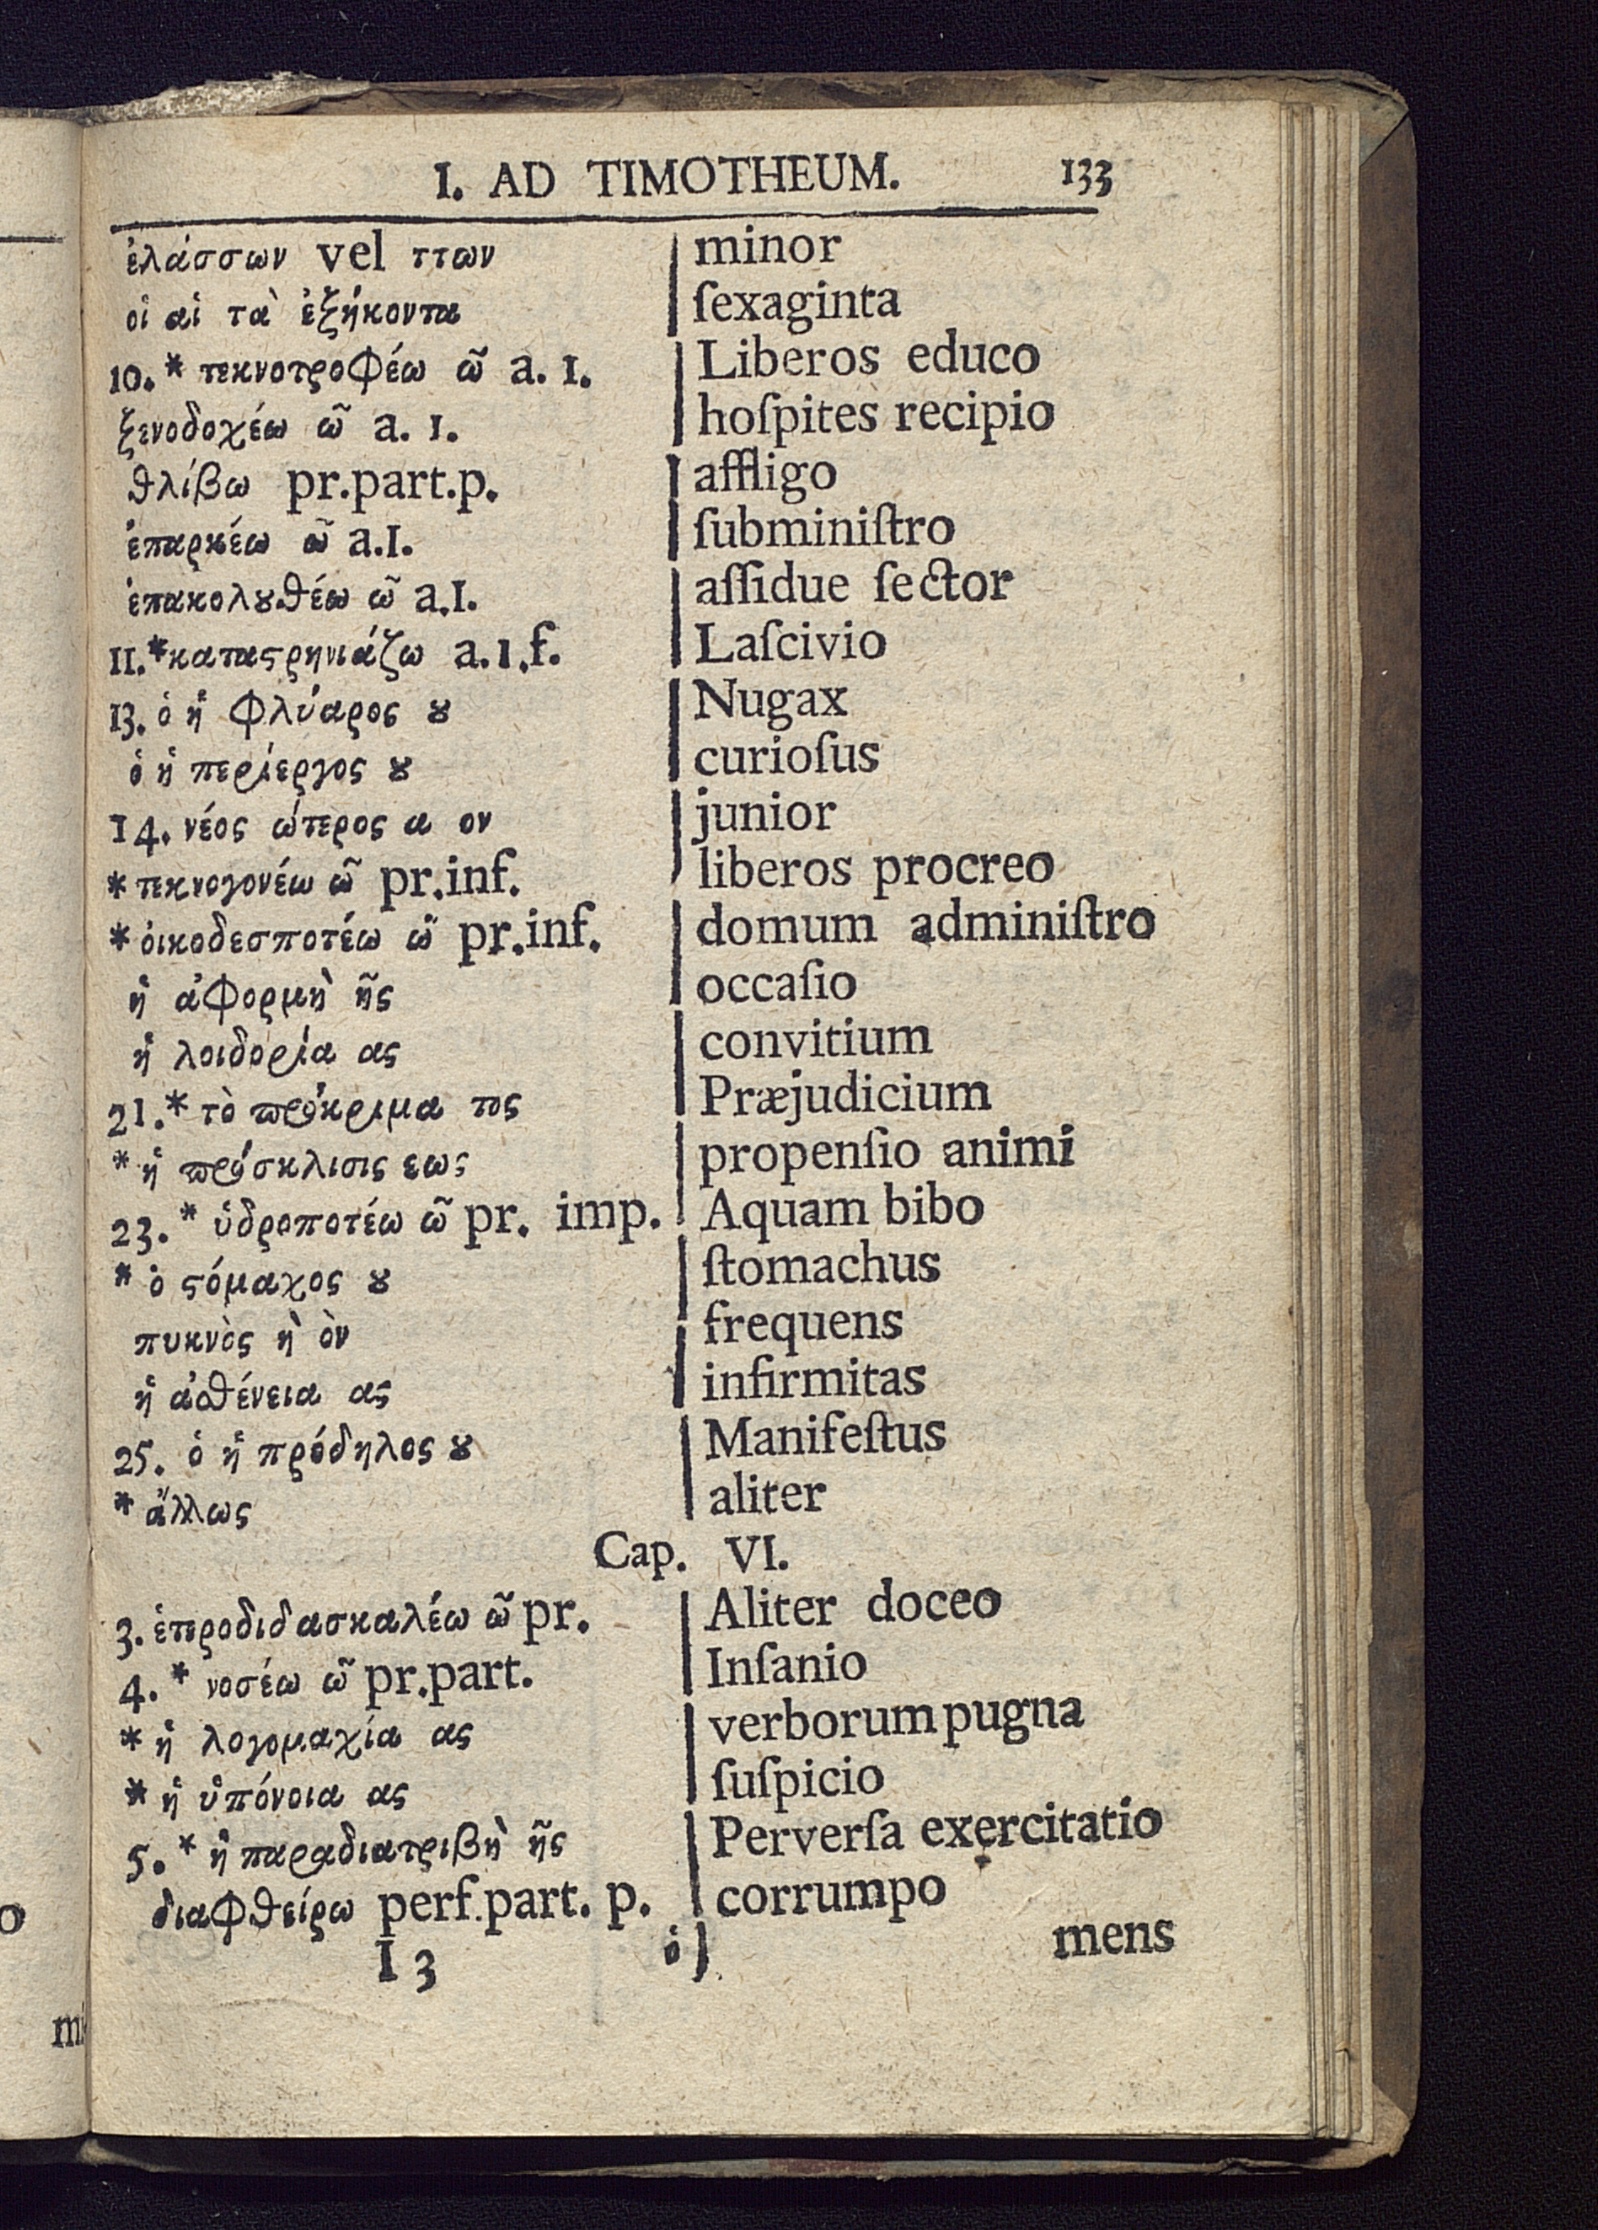 I. AD TIMOTHEUM. 133
ἐλάσσων vel ττων | minor
οἱ αἱ τὰ ἐξήκοντα | ſexaginta
10. * τεκνοτροφέω ῶ a. 1. | Liberos educo
ξενοδοχέω ῶ a. 1. | hoſpites recipio
θλίβω pr.part.p. | affligo
ἐπαρκέω ῶ a.I. | ſubminiſtro
ἐπακολȣθέω ῶ a.I. | aſſidue ſector
11.*καταϛρηνιάζω a.1.f. | Laſcivio
13. ὁ ἡ φλύαρος ȣ | Nugax
ὁ ἡ περίεργος ȣ | curioſus
14. νέος ώτερος α ον | junior
* τεκνογονέω ῶ pr.inf. | liberos procreo
* οἰκοδεσποτέω ῶ pr.inf. | domum adminiſtro
ἡ ἀφορμὴ ῆς | occaſio
ἡ λοιδορία ας | convitium
21.* τὸ πρόκριμα τος | Præjudicium
* ἡ πρόσκλισις εως | propenſio animi
23. * ὑδροποτέω ῶ pr. imp. | Aquam bibo
* ὁ ϛόμαχος ȣ | ſtomachus
πυκνὸς ὴ ὸν | frequens
ἡ ἀσθένεια ας | infirmitas
25. ὁ ἡ πρόδηλος ȣ | Manifeſtus
* ἄλλως | aliter
Cap. VI.
3. ἑτεροδιδασκαλέω ῶ pr. | Aliter doceo
4. * νοσέω ῶ pr.part. | Inſanio
* ἡ λογομαχία ας | verborum pugna
* ἡ ὑπόνοια ας | ſuſpicio
5. * ἡ παραδιατριβὴ ῆς | Perverſa exercitatio
διαφθείρω perf.part. p. | corrumpo
I 3 ὁ | mens